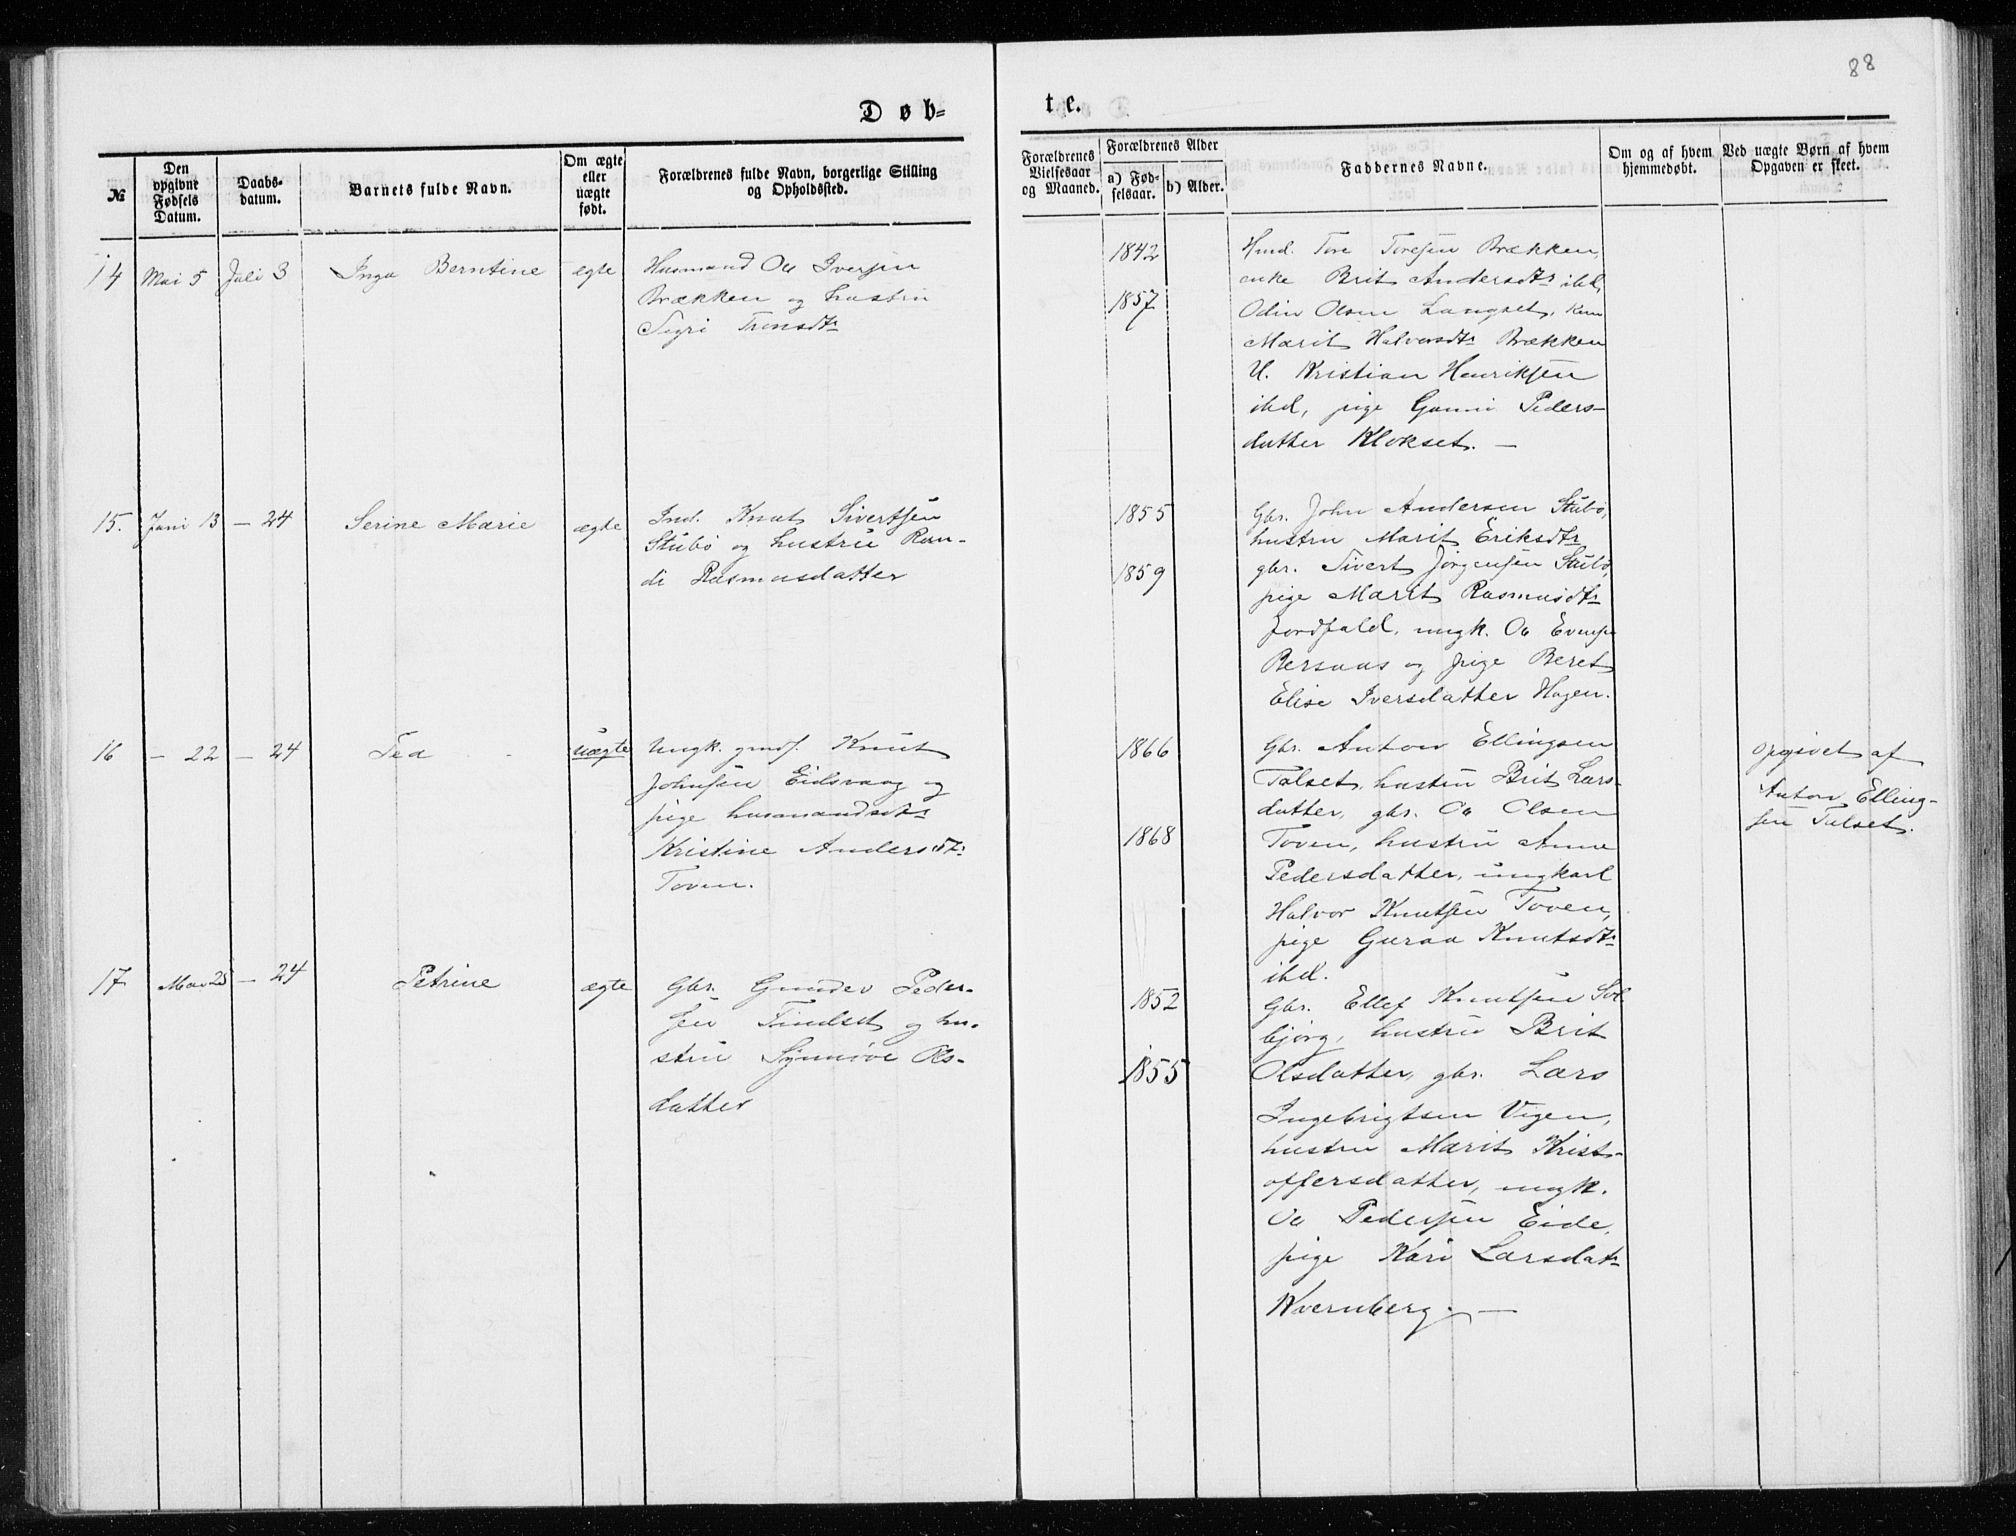 88
Døb=
te.
№
Den opgivne Fødsels Datum.
Daabs-datum.
Barnets fulde Navn.
Om ægte eller uægte født.
Forældrenes fulde Navn, borgerlige Stilling og Opholdssted.
Forældrenes Vielsesaar og Maaned.
Forældrenes Alder
a) Fødselsaar.
b) Alder.
Faddernes Navne.
Om og af hvem hjemmedøbt.
Ved uægte Børn af hvem Opgaven er skeet.
14 Mai 5 Juli 3 Inga Berntine ægte
Husmand Ole Iversen
Brækken og hustru
Sigri Tronsdtr
1842
1857
Husd. Tore Toresen Brækken,
enke Brit Andersdtr ibd,
Odin Olsen Langset,
Marit Halvorsdtr Brækken
U. Kristian Henriksen
ibd, pige Gunni Peders-
datter Klokset. —
15. Juni 13 — 24 Serine Marie ægte
Ind. Knut Sivertsen
Stubø og hustru Ran-
di Rasmusdatter
1855
1859
Gbr. John Andersen Stubø,
hustru Marit Eriksdtr
gbr. Sivert Jørgensen Stubø,
pige Marit Rasmusdtr
Jordfald, ungk. Ole Evensen
Bersaas og pige Beret
Elise Iversdatter Hagen.
16 — 22 — 24 Tea uægte
Ungk. gmdf. Knut
Johnsen Eidsvaag og
pige husmandsdtr
Kristine Andersdtr
Toven.
1866
1868
Gbr. Anton Ellingsen
Talset, hustru Brit Lars-
datter, gbr. Ole Olsen
Toven, hustru Anne
Pedersdatter, ungkarl
Halvor Knutsen Toven,
pige Guraa Knutsdtr
ibd.
Opgivet af
Anton Elling-
sen Talset.
17 Mai 25 — 24 Petrine ægte
Gbr. Gunder Peder-
sen Tindset og hu-
stru Synnøve Ols-
datter
1852
1855
Gbr. Ellef Knutsen Sol
bjørg, hustru Brit
Olsdatter, gbr. Lars
Ingebrigtsen Vigen,
hustru Marit Krist-
offersdatter, ungk.
Ole Pedersen Eide,
pige Kari Larsdatr
Kvernberg. —